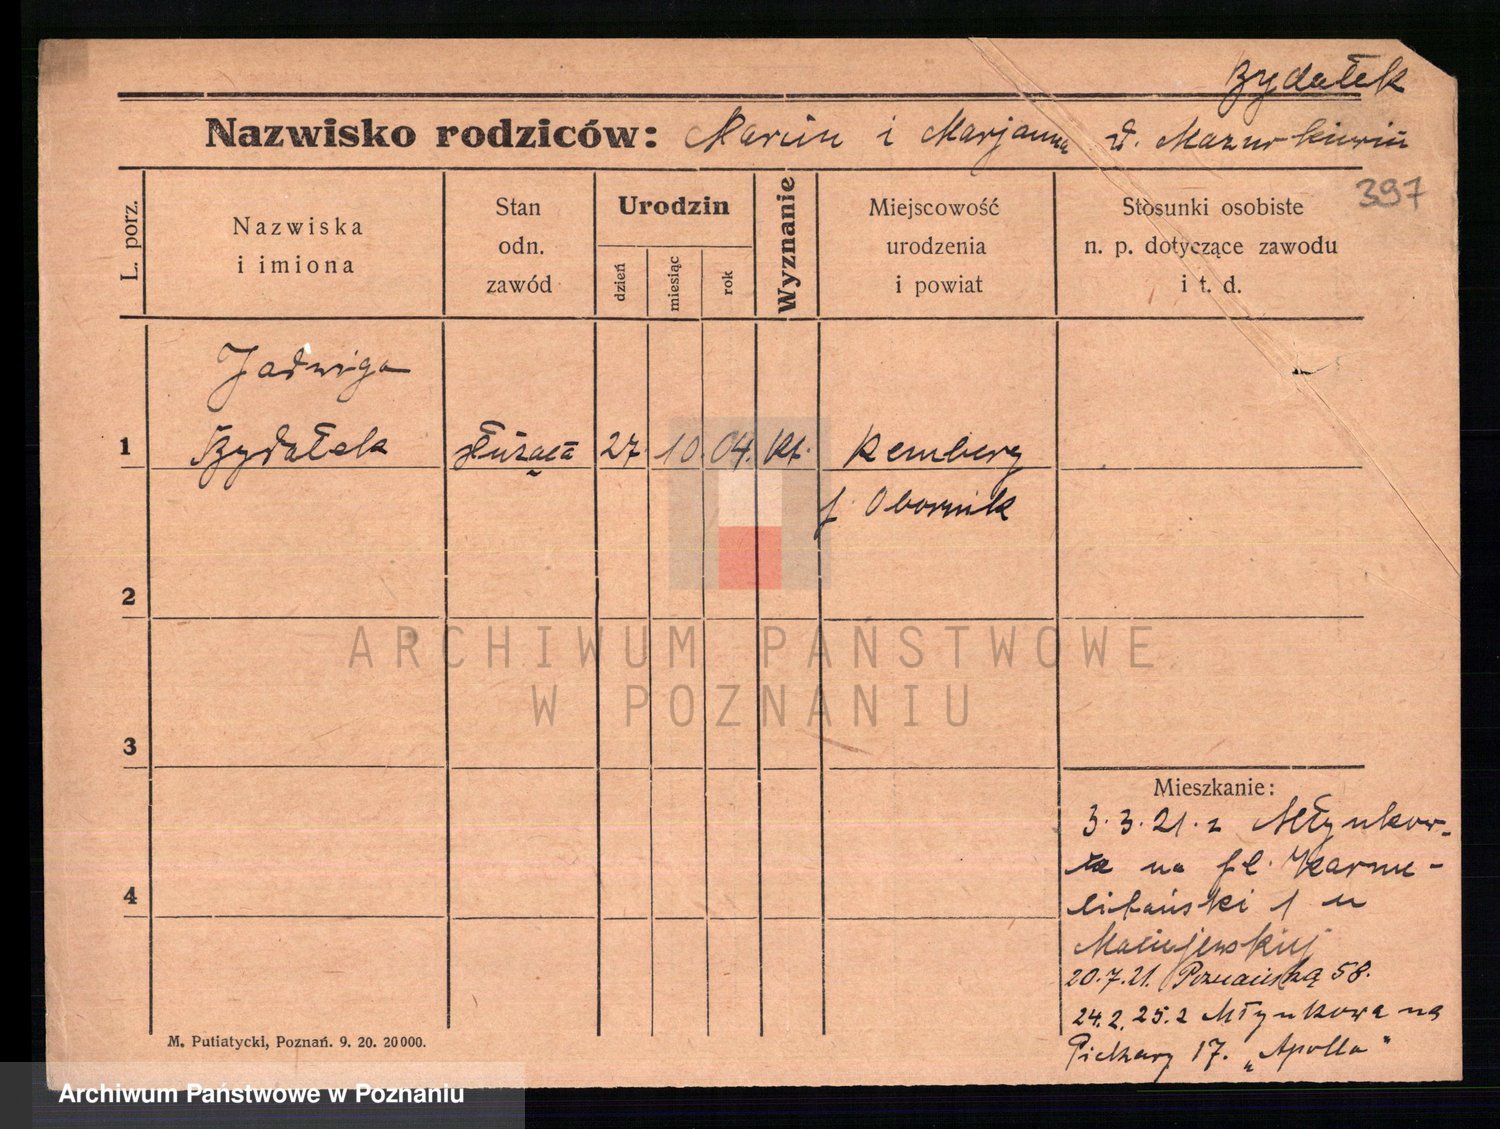 Bydałek
Nazwisko rodziców: Marcin i Marjanna d. Mazurkiewicz
397
L. porz.
Nazwiska
i imiona
Stan
odn.
zawód
Urodzin
dzień
miesiąc
rok
Wyznanie
Miejscowość
urodzenia
i powiat
Stosunki osobiste
n. p. dotyczące zawodu
i t. d.
Jadwiga
1 Bydałek służąca 27 10. 04. kt. Remberg
p Obornik
2
3
4
Mieszkanie:
3. 3. 21. z Młynkow-
na pl. Karme-
litański 1 u
Maciejewskiej
20.7.21. Poznańska 58.
24.2.25. z Młynkowa na
Piekary 17. „Apollo"
M. Putiatycki, Poznań. 9. 20. 20000.
ARCHIWUM PAŃSTWOWE
W POZNANIU
Archiwum Państwowe w Poznaniu